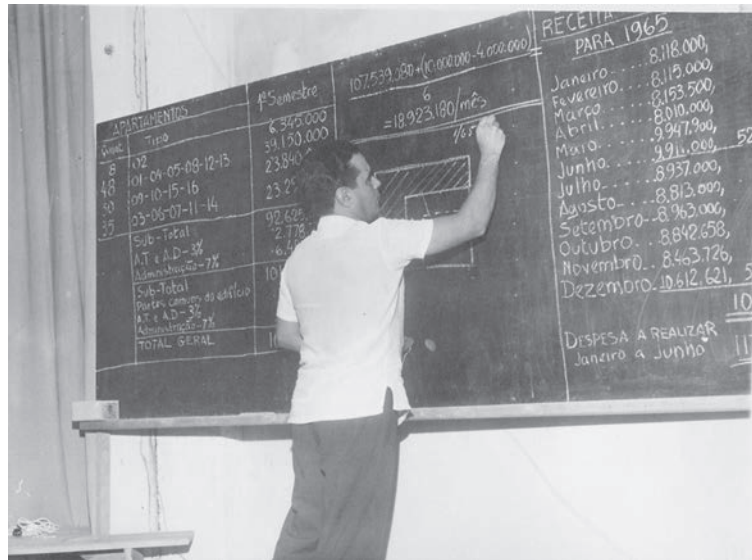 APARTAMENTOS
Quant. Tipo 1º Semestre
8 02 6.345.000
48 01-04-05-08-12-13 39.150.000
30 09-10-15-16 23.840
35 03-06-07-11-14 23.25
Sub-Total 92.625
A.T. e A.D-3% 2.778
Administração-7% 6.4
Sub-Total 10
Partes comuns do edifício
A.T. e A.D-3%
Administração-7%
TOTAL GERAL 1
107.539.080+(10.000.000-4.000.000)
6
=18.923.180/mês
1/65
RECEITA
PARA 1965
Janeiro.... 8.118.000,
Fevereiro... 8.115.000,
Março..... 8.153.500,
Abril...... 8.010.000,
Maio...... 9.947.900,
Junho..... 9.911.000, 52
Julho...... 8.937.000,
Agosto.... 8.813.000,
Setembro... 8.963.000,
Outubro... 8.842.658,
Novembro.. 8.463.726,
Dezembro.. 10.612.621, 5
10
DESPESA A REALIZAR
Janeiro a Junho 11